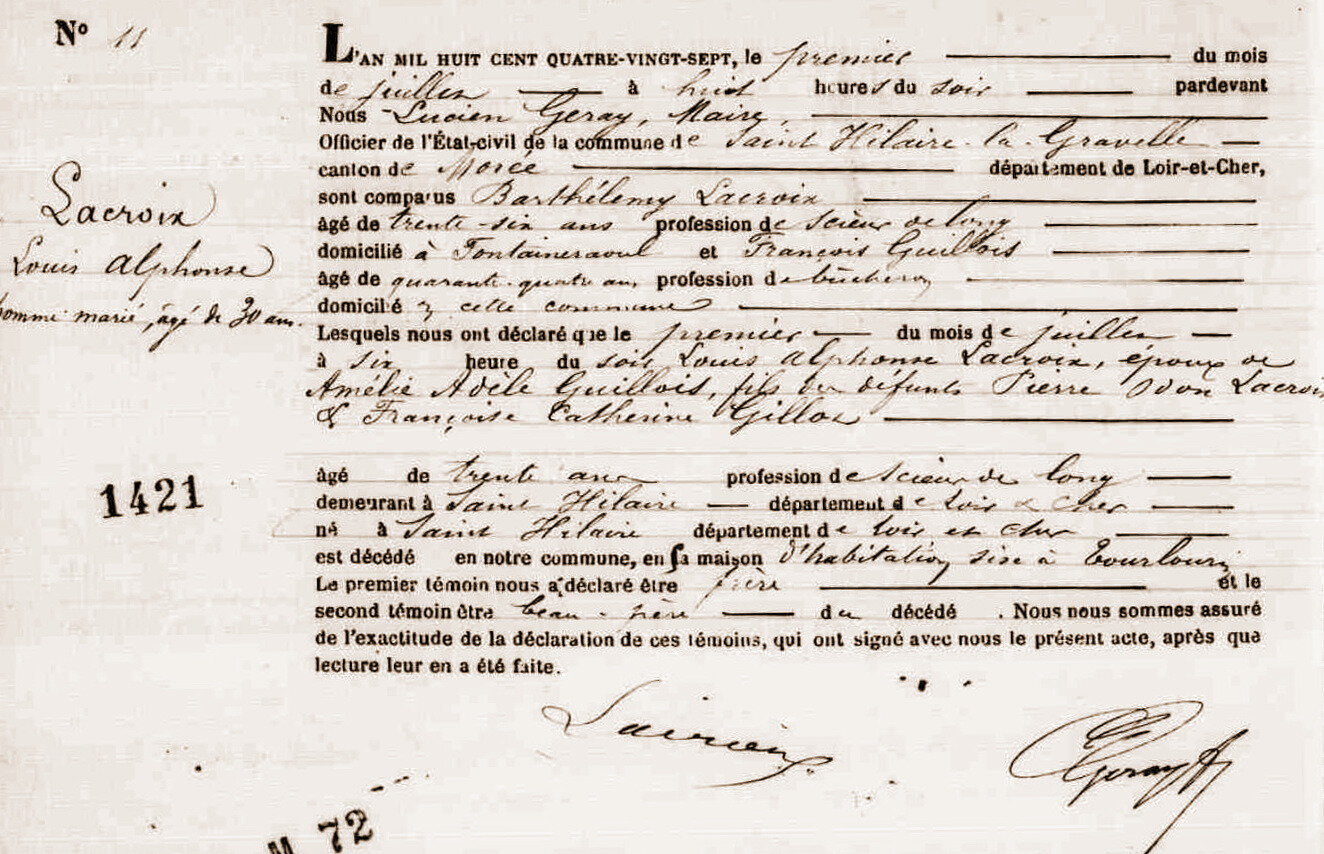 Nº 11
L'AN MIL HUIT CENT QUATRE-VINGT-SEPT, le premier du mois
de juillet à huit heures du soir pardevant
Nous Lucien Geray, Maire,
Officier de l'État-civil de la commune de Saint Hilaire-la-Gravelle
canton de Morée département de Loir-et-Cher,
sont comparus Barthélemy Lacroix
âgé de trente-six ans profession de scieur de long
domicilié à Fontaineraoul et François Guillois
âgé de quarante-quatre ans profession de bûcheron
domicilié en cette commune
Lesquels nous ont déclaré que le premier du mois de juillet
à six heure du soir Louis Alphonse Lacroix, époux de
Amélie Adèle Guillois, fils de défunts Pierre Odon Lacroix
& Françoise Catherine Gillot
âgé de trente ans profession de scieur de long
demeurant à Saint Hilaire département de Loir & Cher
né à Saint Hilaire département de Loir et Cher
est décédé en notre commune, en sa maison d'habitation sise à
Le premier témoin nous a déclaré être frère et le
second témoin être beau-père du décédé. Nous nous sommes assuré
de l'exactitude de la déclaration de ces témoins, qui ont signé avec nous le présent acte, après que
lecture leur en a été faite.
Lacroix
Geray
Lacroix
Louis Alphonse
homme marié, âgé de 30 ans.
1421
72